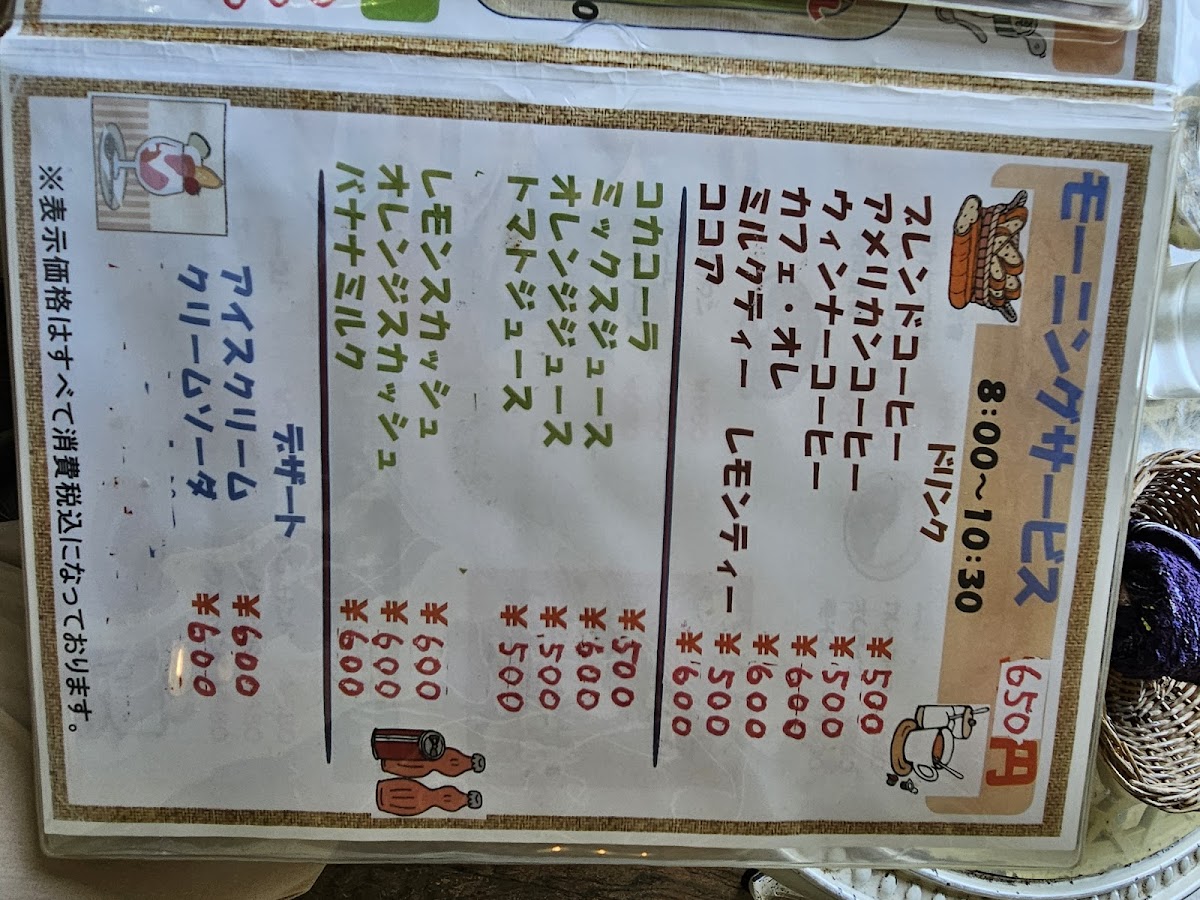 モーニングサービス 650円
8:00~10:30
ドリンク
ブレンドコーヒー ¥500
アメリカンコーヒー ¥500
ウィンナーコーヒー ¥600
カフェ・オレ ¥600
ミルクティー レモンティー ¥500
ココア ¥600
コカコーラ ¥500
ミックスジュース ¥600
オレンジジュース ¥500
トマトジュース ¥500
レモンスカッシュ ¥600
オレンジスカッシュ ¥600
バナナミルク ¥600
デザート
アイスクリーム ¥600
クリームソーダ ¥600
※表示価格はすべて消費税込になっております。